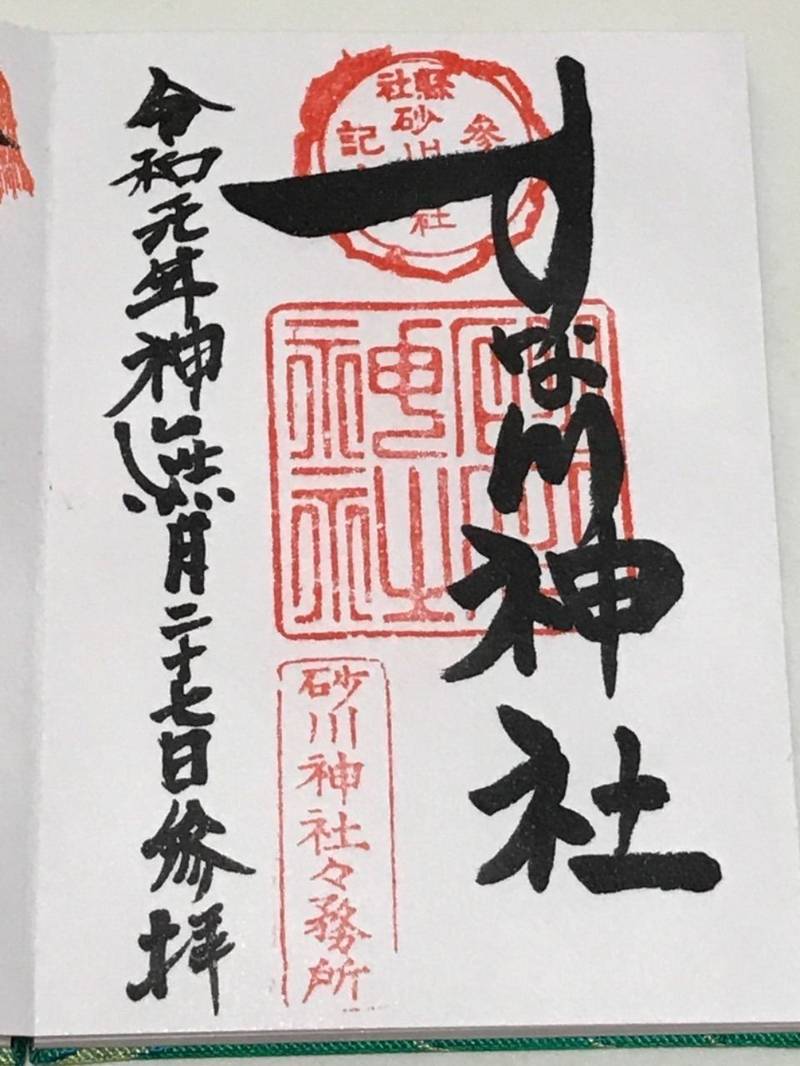 すな川神社
參
縣社
砂川
社
記
砂川神社
砂川神社々務所
令和元年神無月二十七日参拝